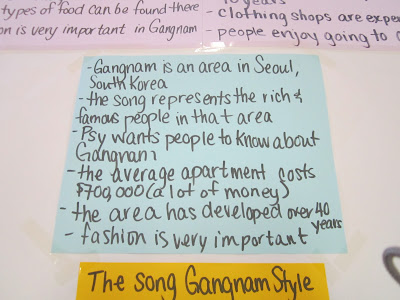 types of food can be found there
on is very important in Gangnam
years
- clothing shops are expe
- people enjoy going to
- Gangnam is an area in Seoul,
South Korea
- the song represents the rich &
famous people in that area
- Psy wants people to know about
Gangnam
- the average apartment costs
$700,000 (a lot of money)
- the area has developed over 40
years
- fashion is very important
The song Gangnam Style